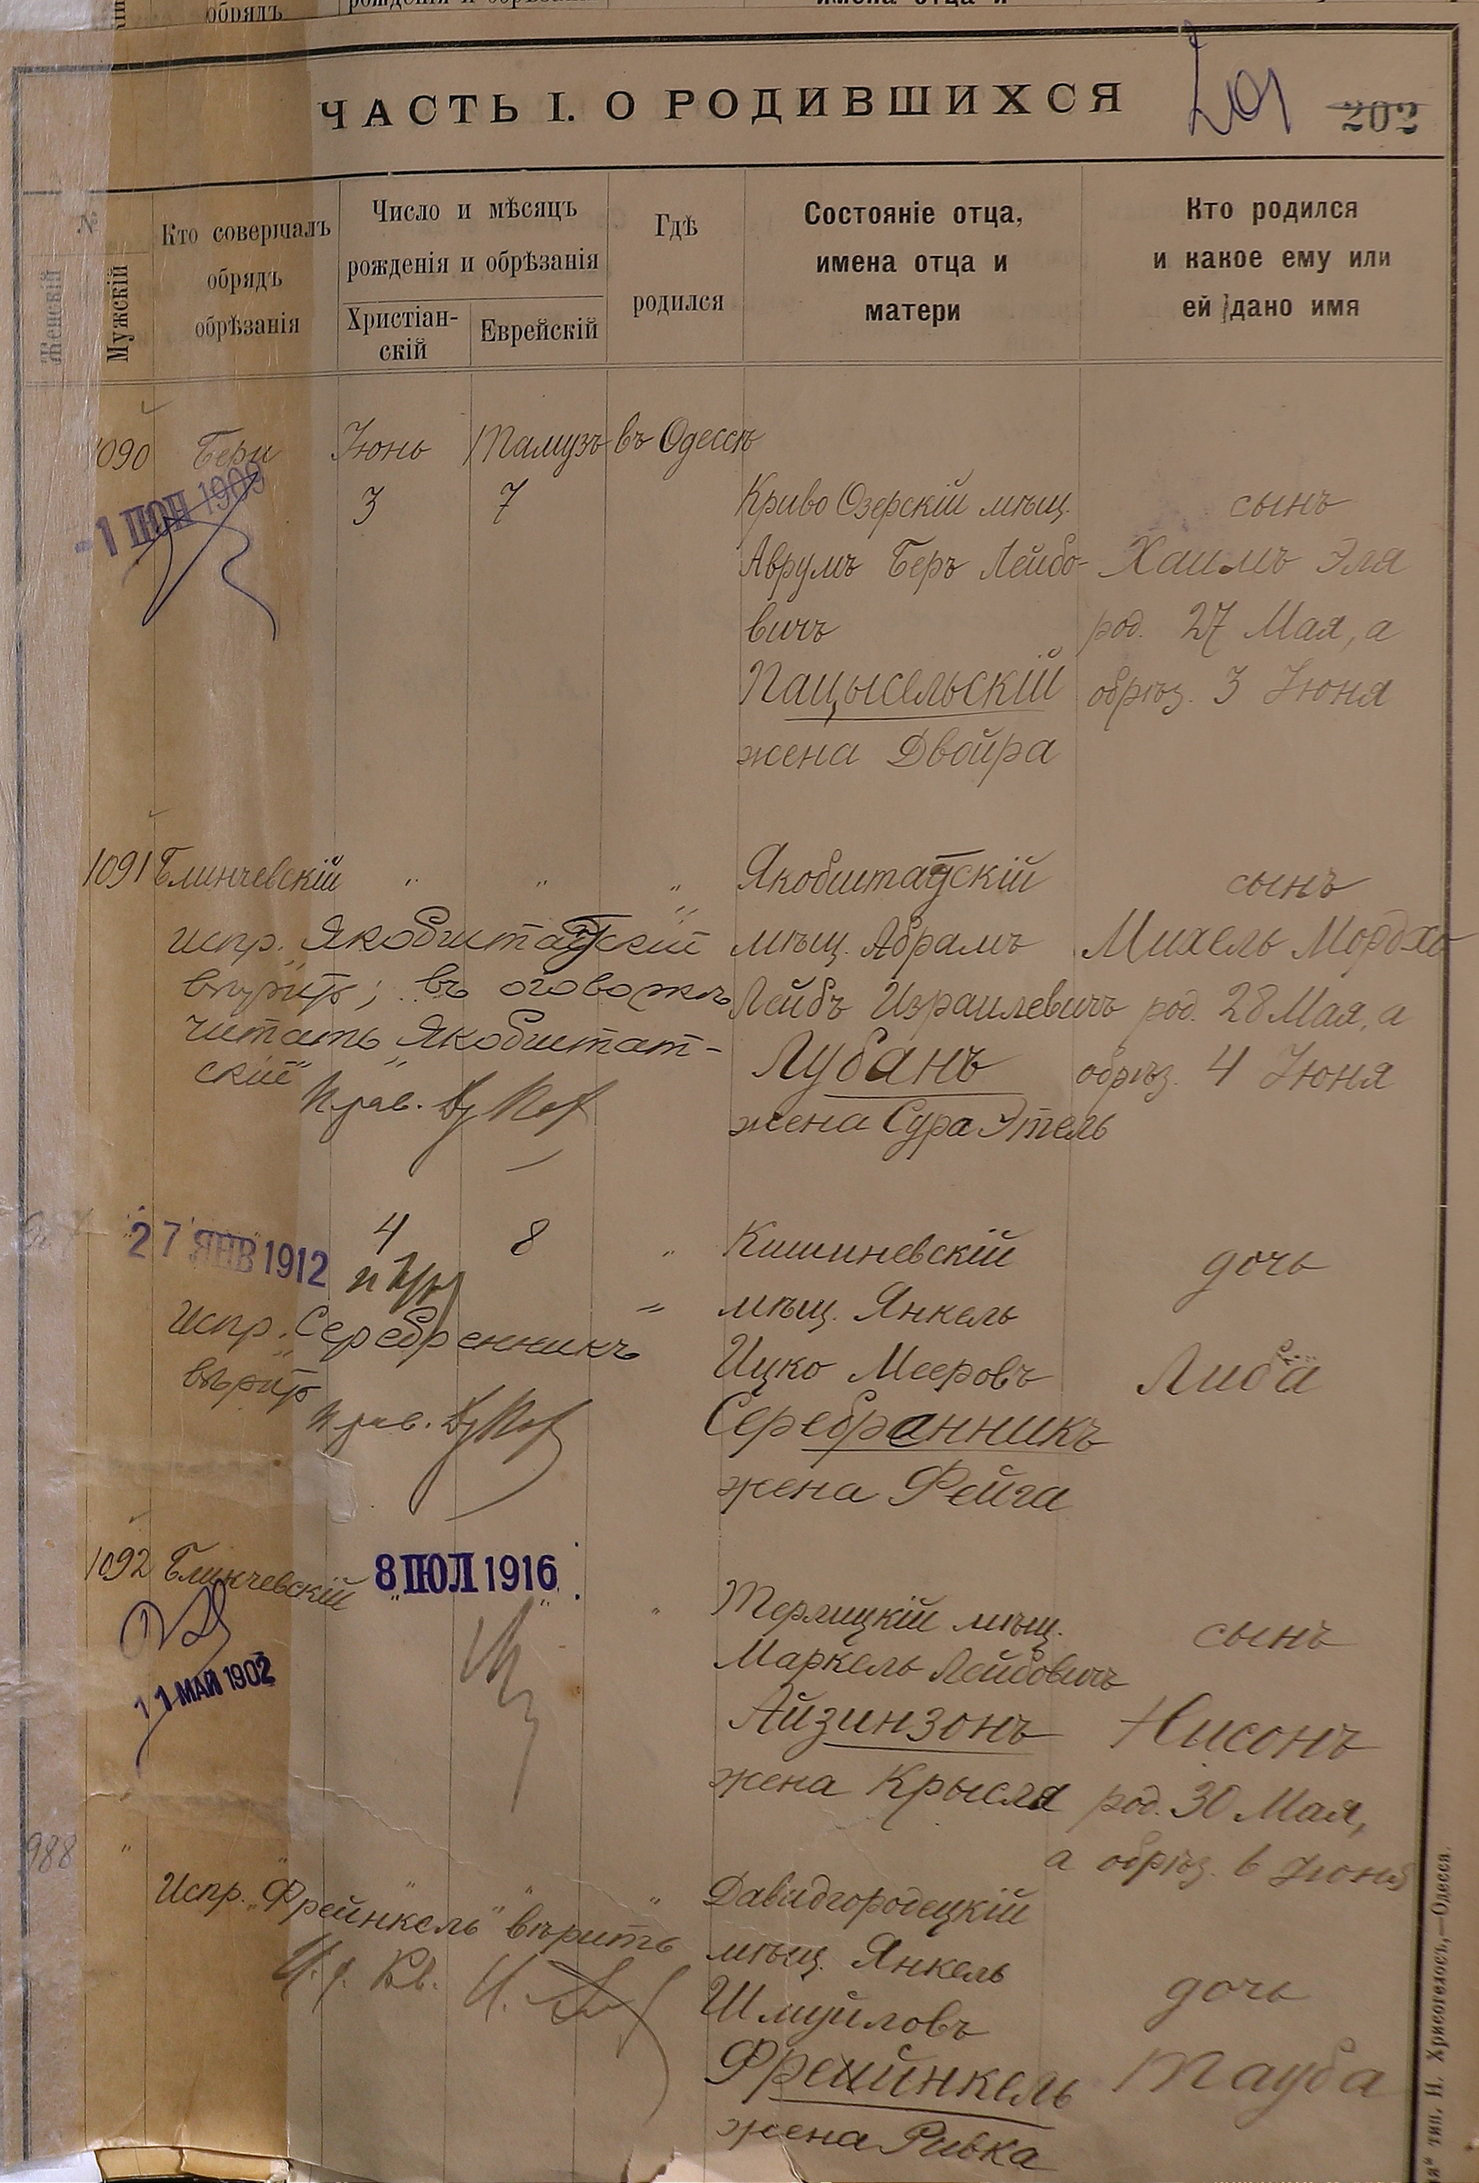 ЧАСТЬ I. О РОДИВШИХСЯ
201
202
№
Женскій
Мужскій
Кто совершалъ
обрядъ
обрѣзанія
Число и мѣсяцъ
рожденія и обрѣзанія
Христіан-
скій
Еврейскій
Гдѣ
родился
Состояніе отца,
имена отца и
матери
Кто родился
и какое ему или
ей дано имя
1090 Бери Іюнь Тамузъ въ Одессѣ
-1 ІЮН 1909
3 7
Криво Озерскій мѣщ.
Аврумъ Беръ Лейбо-
вичъ
Пацысельскій
жена Двойра
сынъ
Хаимъ Эля
род. 27 Мая, а
обрѣз. 3 Іюня
1091 Блинчевскій " " "
Испр. "Якобштадтскій"
вѣрить; въ оговоркѣ
читать "Якобштат-
скій"
Якобштадтскій
мѣщ. Абрамъ
Лейбъ Израилевичъ
Лубанъ
жена Сура Этель
сынъ
Михель Мордхо
род. 28 Мая, а
обрѣз. 4 Іюня
27 ЯНВ 1912
4 8 "
Испр. "Серебренникъ"
вѣрить
Кишиневскій
мѣщ. Янкель
Ицко Мееровъ
Серебренникъ
жена Фейга
дочь
Либа
1092 Блинчевскій " " "
8 ІЮЛ 1916
11 МАЙ 1902
Терлицкій мѣщ.
Маркель Лейбовичъ
Айзинзонъ
жена Крысля
сынъ
Нисонъ
род. 30 Мая,
а обрѣз. 6 Іюня
988 " " " "
Испр. "Фрейнкель" вѣрить
Давидгородецкій
мѣщ. Янкель
Шмуйловъ
Фрейнкель
жена Ривка
дочь
Тауба
тип. Н. Хрисогелосъ,—Одесса.